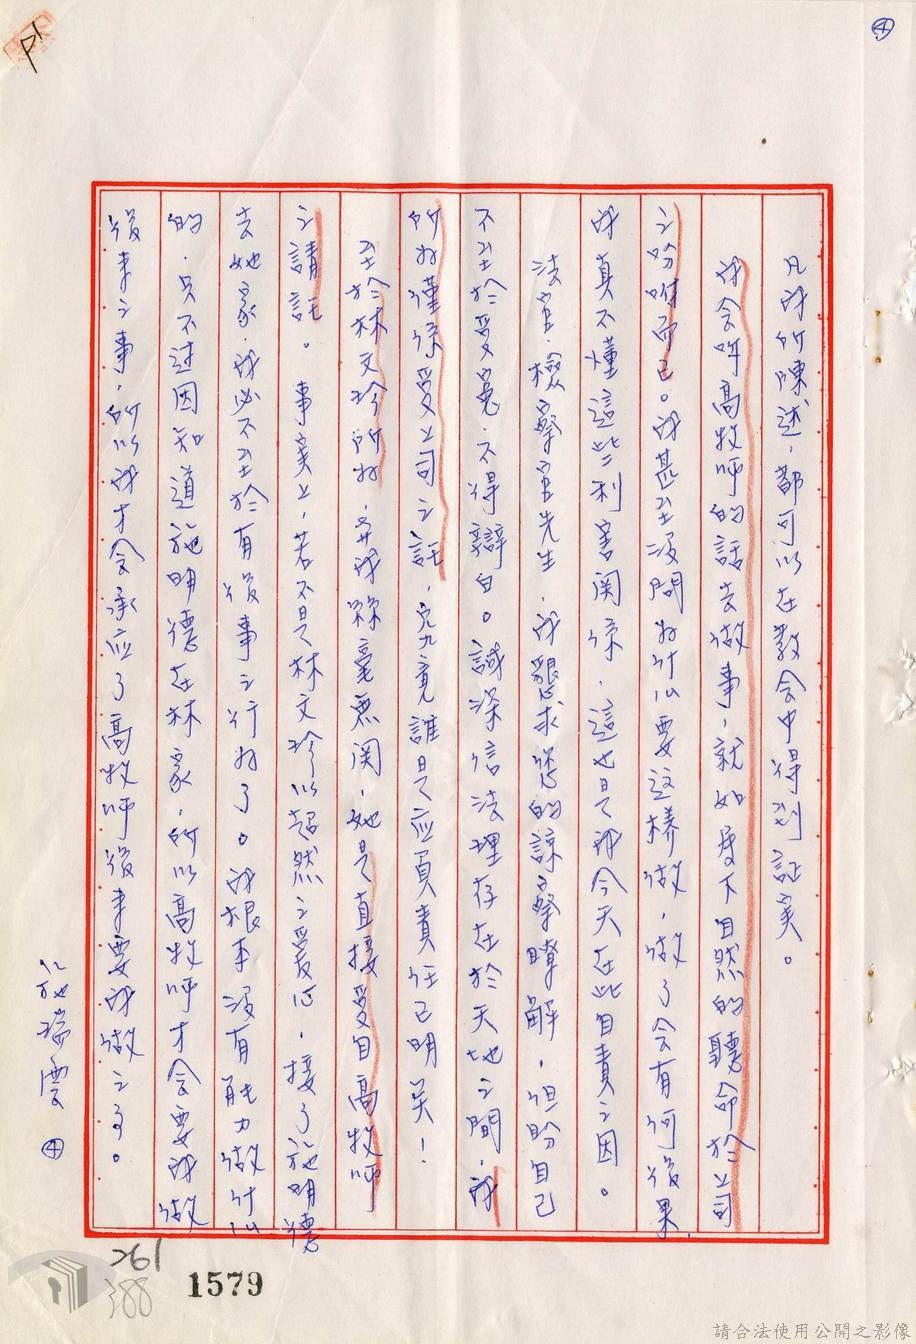 ④
凡我所陳述，都可以在教会中得到証实。
我会听高牧师的話去做事，就如屬下自然的聽命於上司
之吩咐而已。我甚至沒問为什么要这樣做，做了会有何後果，
我真不懂這些利害関係，這也是我今天在此自責之因。
法官、檢察官先生，我懇求您的諒察瞭解，但盼自己
不至於受冤，不得辯白。誠深信法理存在於天地之間，我
所为僅係受上司之託，究竟誰是应負責任已明矣！
至於林文珍所为，与我絲毫無関，她是直接受自高牧师
之請託。事实上，若不是林文珍以超然之爱心，接了施明德
去她家，我必不至於有後事之行为了。我根本沒有能力做什么
的，只不过因知道施明德在林家，所以高牧师才会要我做
後来之事，所以我才会承应了高牧师後来要我做之事。
施瑞雲 ④
261
388
1579
請合法使用公開之影像